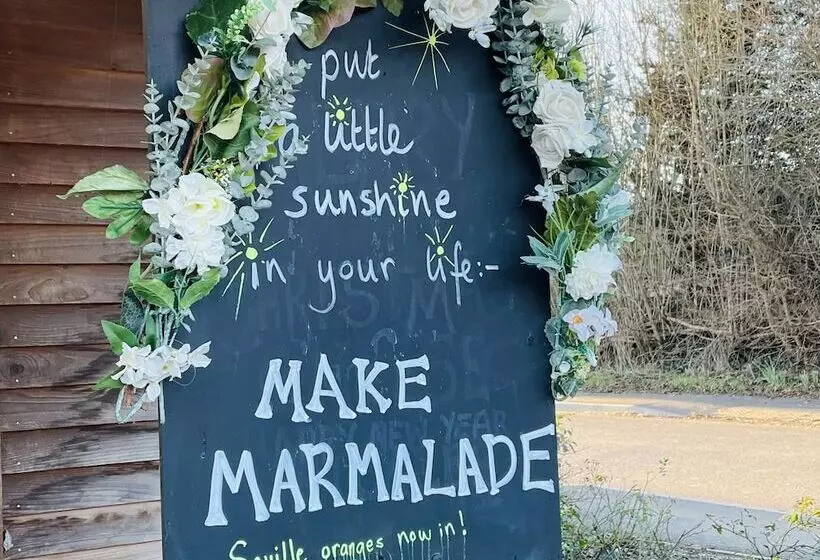 put
a little
sunshine
in your life:-
MAKE
MARMALADE
Seville oranges now in!